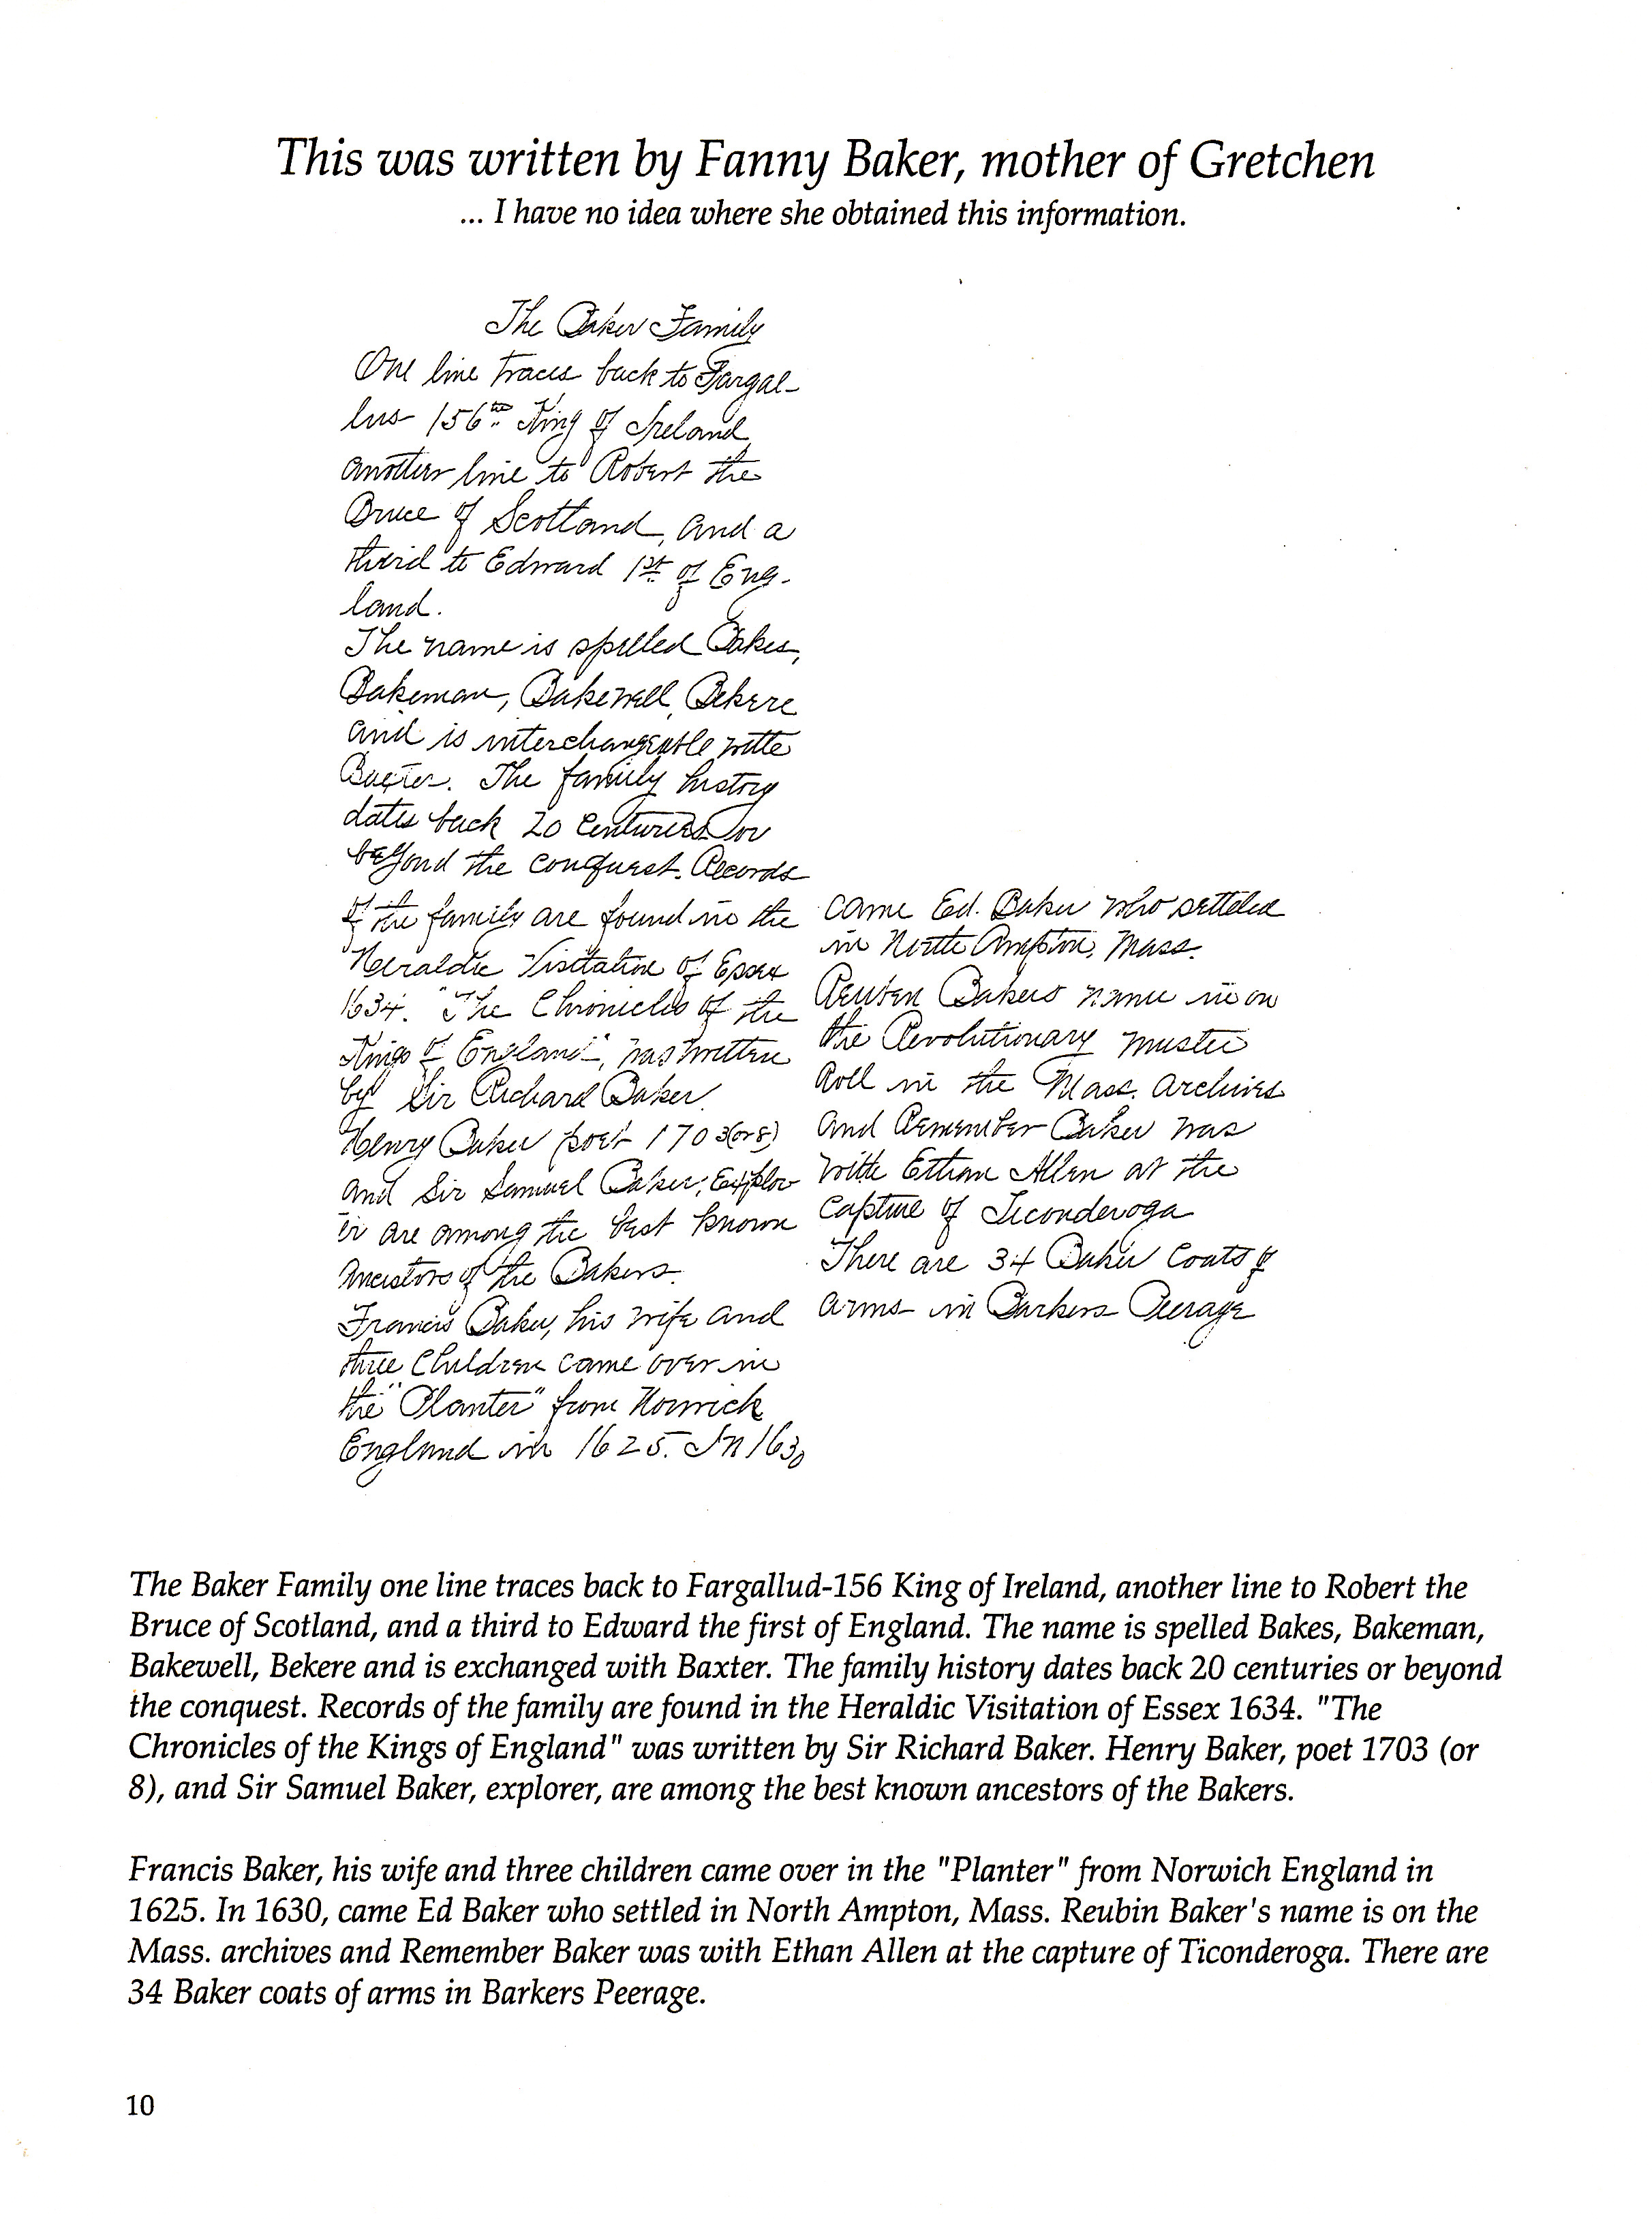 This was written by Fanny Baker, mother of Gretchen
... I have no idea where she obtained this information.
The Baker Family
One line traces back to Fargal-
lus 156th King of Ireland,
another line to Robert the
Bruce of Scotland, and a
third to Edward 1st of Eng-
land.
The name is spelled Bakes,
Bakeman, Bakewell, Bekere
and is interchangeable with
Baxter. The family history
dates back 20 centuries or
beyond the conquest. Records
of the family are found in the
Heraldic Visitation of Essex
1634. "The Chronicles of the
Kings of England", was written
by Sir Richard Baker.
Henry Baker poet 1703(or 8)
and Sir Samuel Baker, Explor
er are among the best known
ancestors of the Bakers.
Francis Baker, his wife and
three children came over in
the "Planter" from Norwich
England in 1625. In 1630
came Ed. Baker who settled
in North Ampton, Mass.
Reuben Bakers name is on
the Revolutionary muster
roll in the Mass. archives
and Remember Baker was
with Ethan Allen at the
capture of Ticonderoga
There are 34 Baker coats of
arms in Barkers Peerage
The Baker Family one line traces back to Fargallud-156 King of Ireland, another line to Robert the
Bruce of Scotland, and a third to Edward the first of England. The name is spelled Bakes, Bakeman,
Bakewell, Bekere and is exchanged with Baxter. The family history dates back 20 centuries or beyond
the conquest. Records of the family are found in the Heraldic Visitation of Essex 1634. "The
Chronicles of the Kings of England" was written by Sir Richard Baker. Henry Baker, poet 1703 (or
8), and Sir Samuel Baker, explorer, are among the best known ancestors of the Bakers.
Francis Baker, his wife and three children came over in the "Planter" from Norwich England in
1625. In 1630, came Ed Baker who settled in North Ampton, Mass. Reubin Baker's name is on the
Mass. archives and Remember Baker was with Ethan Allen at the capture of Ticonderoga. There are
34 Baker coats of arms in Barkers Peerage.
10